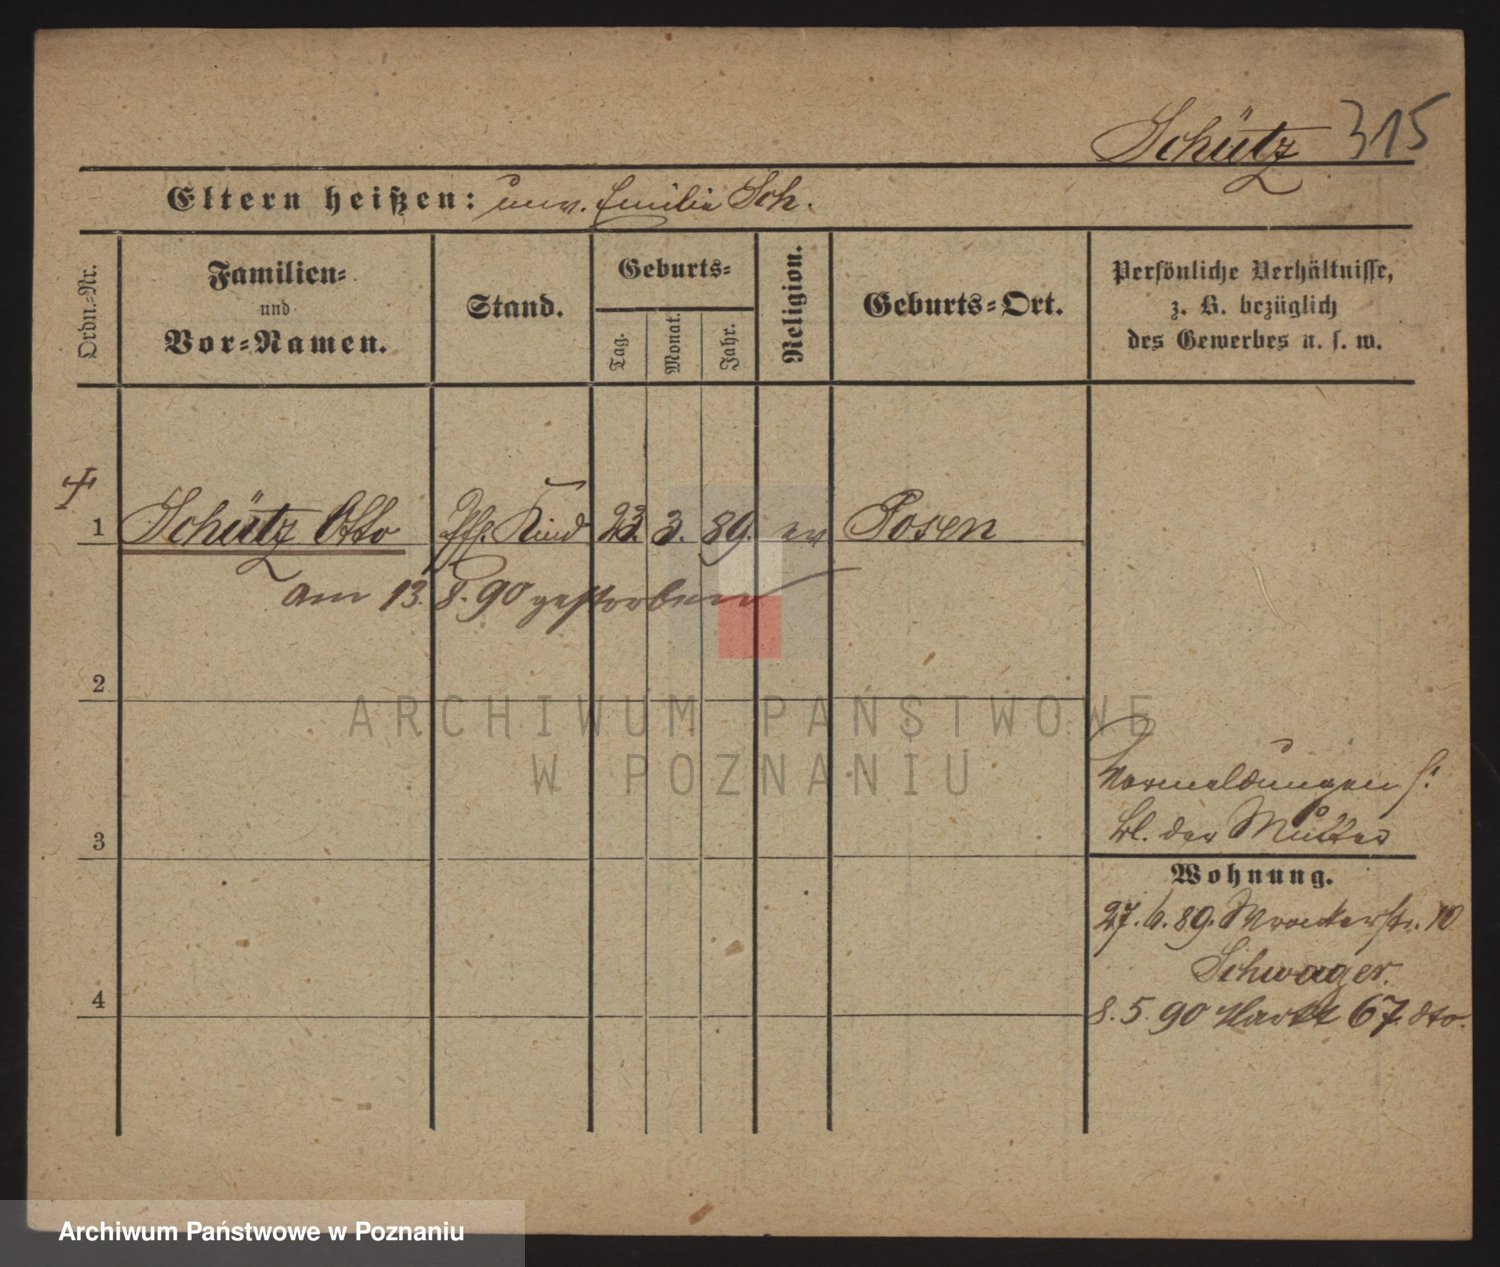 Schütz 315
Eltern heißen: unv. Emilie Sch.
Ordn.-Nr.
Familien-
und
Vor-Namen.
Stand.
Geburts-
Tag.
Monat.
Jahr.
Religion.
Geburts-Ort.
Persönliche Verhältnisse,
z. B. bezüglich
des Gewerbes u. s. w.
1 Schütz Otto Kind 23. 3. 89. ev Posen
am 13. 8. 90 gestorben
2
ARCHIWUM PAŃSTWOWE
W POZNANIU
Vormeldungen s.
bl. der Mutter
3
Wohnung.
27. 6. 89. 10
Schwager.
4
8. 5. 90 Markt 67. dto.
Archiwum Państwowe w Poznaniu